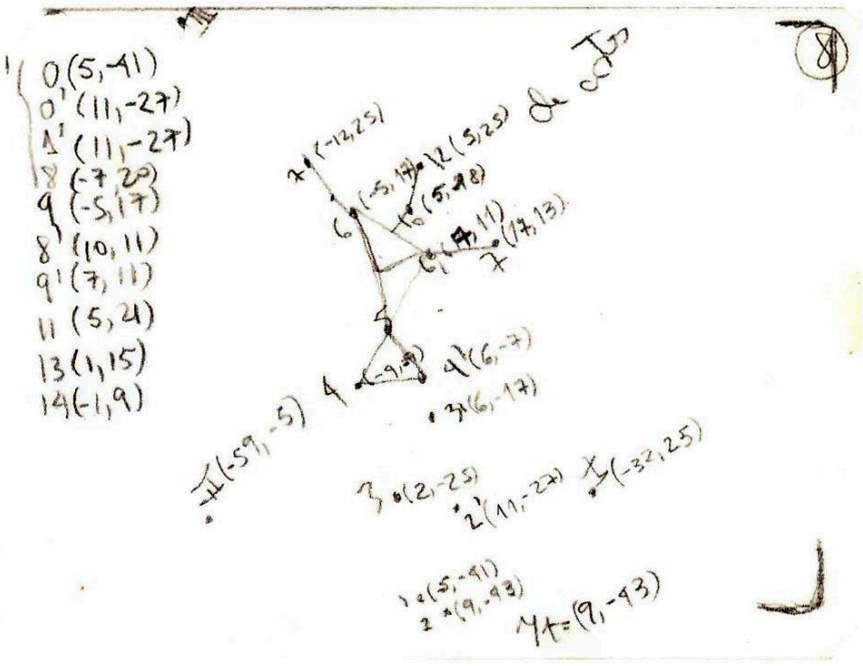 8
0 (5,-41)
0' (11,-27)
1' (11,-27)
8 (-7,20)
9 (-5,17)
8' (10,11)
9' (7,11)
11 (5,21)
13 (1,15)
14 (-1,9)
7 (-12,25)
12 (5,25)
6 (-5,17)
10 (5,18)
6' (7,11)
7' (17,13)
5
4 (-9,-9)
4' (6,-7)
3' (6,-17)
(-59,-5)
3 (2,-25)
2' (11,-27)
(-32,25)
1 (5,-41)
2 (9,-43)
=(9,-43)